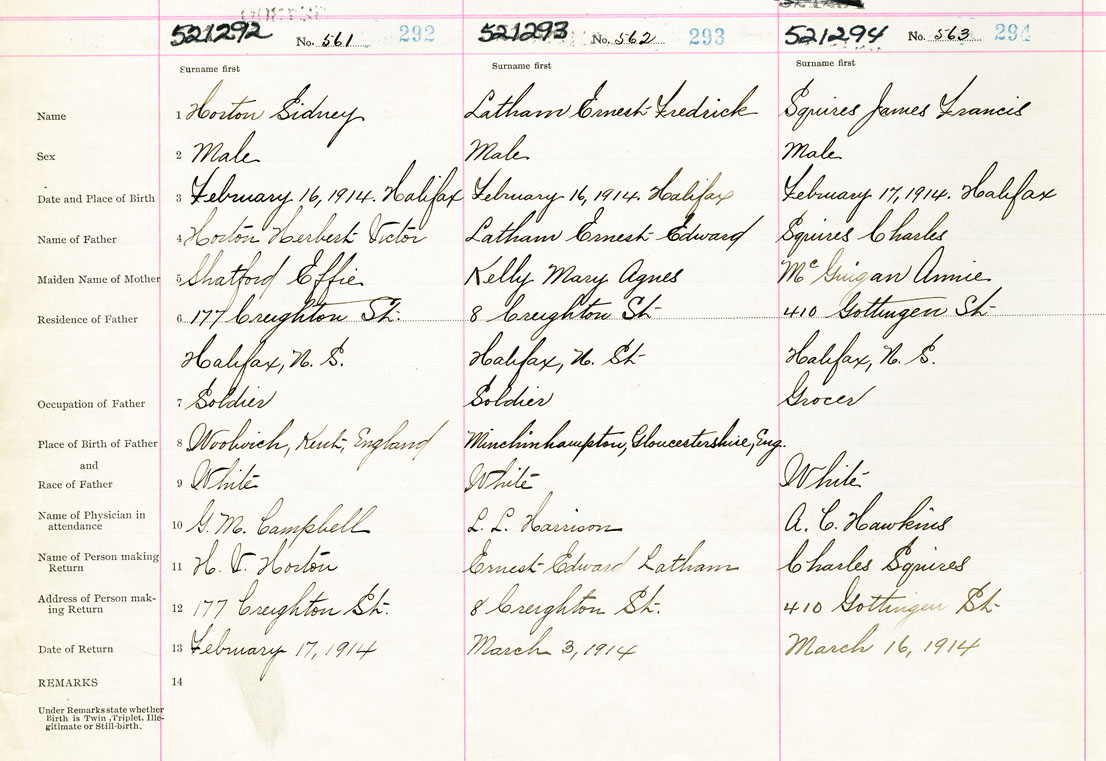 521292 No. 561 292 521293 No. 562 293 521294 No. 563 294
Surname first Surname first Surname first
Name 1 Horton Sidney Latham Ernest Fredrick Squires James Francis
Sex 2 Male Male Male
Date and Place of Birth 3 February 16, 1914. Halifax February 16, 1914. Halifax February 17, 1914. Halifax
Name of Father 4 Horton Herbert Victor Latham Ernest Edward Squires Charles
Maiden Name of Mother 5 Shatford Effie Kelly Mary Agnes McGuigan Annie
Residence of Father 6 177 Creighton St. 8 Creighton St 410 Gottingen St
Halifax, N. S. Halifax, N. St Halifax, N. S.
Occupation of Father 7 Soldier Soldier Grocer
Place of Birth of Father 8 Woolwich, Kent, England Minchinhampton, Gloucestershire, Eng.
and
Race of Father 9 White White White
Name of Physician in
attendance 10 G. M. Campbell L. L. Harrison A. C. Hawkins
Name of Person making
Return 11 H. V. Horton Ernest Edward Latham Charles Squires
Address of Person mak-
ing Return 12 177 Creighton St. 8 Creighton St. 410 Gottingen St
Date of Return 13 February 17, 1914 March 3, 1914 March 16, 1914
REMARKS 14
Under Remarks state whether
Birth is Twin, Triplet, Ille-
gitimate or Still-birth.